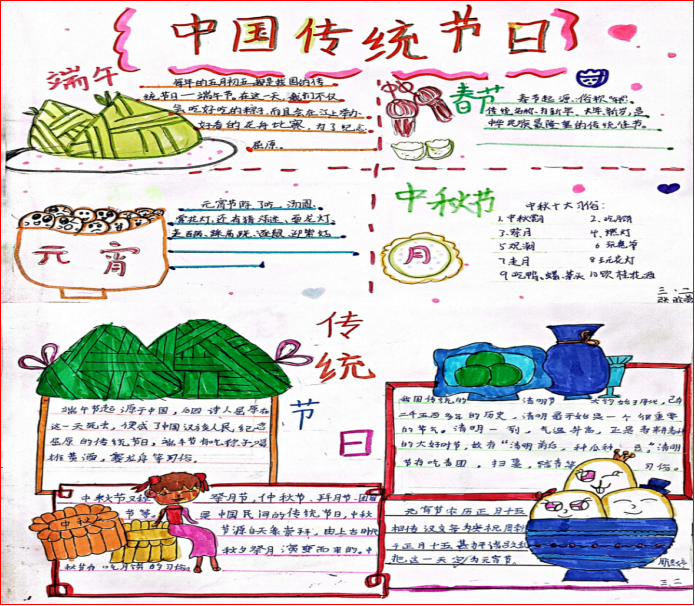 中国传统节日
端午
每年的五月初五,就是我国的传
统节日——端午节。在这一天,我们不仅
能吃好吃的粽子,而且会在江上举办
好看的龙舟比赛,为了纪念
屈原。
春节
春节起源,俗称“年”
传统名称:为新年、大年、新岁,是
中华民族最隆重的传统佳节。
元宵
元宵节除了吃汤圆、
赏花灯,还有猜灯谜、耍龙灯、
中秋节
月
中秋十大习俗:
1.中秋赏月
2.吃月饼
3.祭月
4.燃灯
5.观潮
6
7.走月
8.玩花灯
9.吃鸭、螺、芋头
10饮桂花酒
三.二
传统
节
日
端午节起源于中国,
诗人屈原在
这一天死去,便成了中国汉族人民纪念
屈原的传统节日,端午节有吃粽子喝
雄黄酒,赛龙舟等习俗。
我国传统的
清明节
二千五百多年的历史,清明最开始是一个很重要
的节气。清明一到,气温升高,正是春耕
的大好时节,故有“清明前后,种瓜种豆。”清明
节有吃青团、扫墓、踏青等
习俗。
中秋
中秋节又称
祭月节、仲秋节、拜月节、团
节等。
是中国民间的传统节日,中秋
节源自天象崇拜,由上古时代
秋夕祭月演变而来的。中
秋节有吃月饼的习俗。
元宵节农历正月十五
相传汉文帝为庆祝周勃
于正月十五
把这一天定为元宵节。
三.二